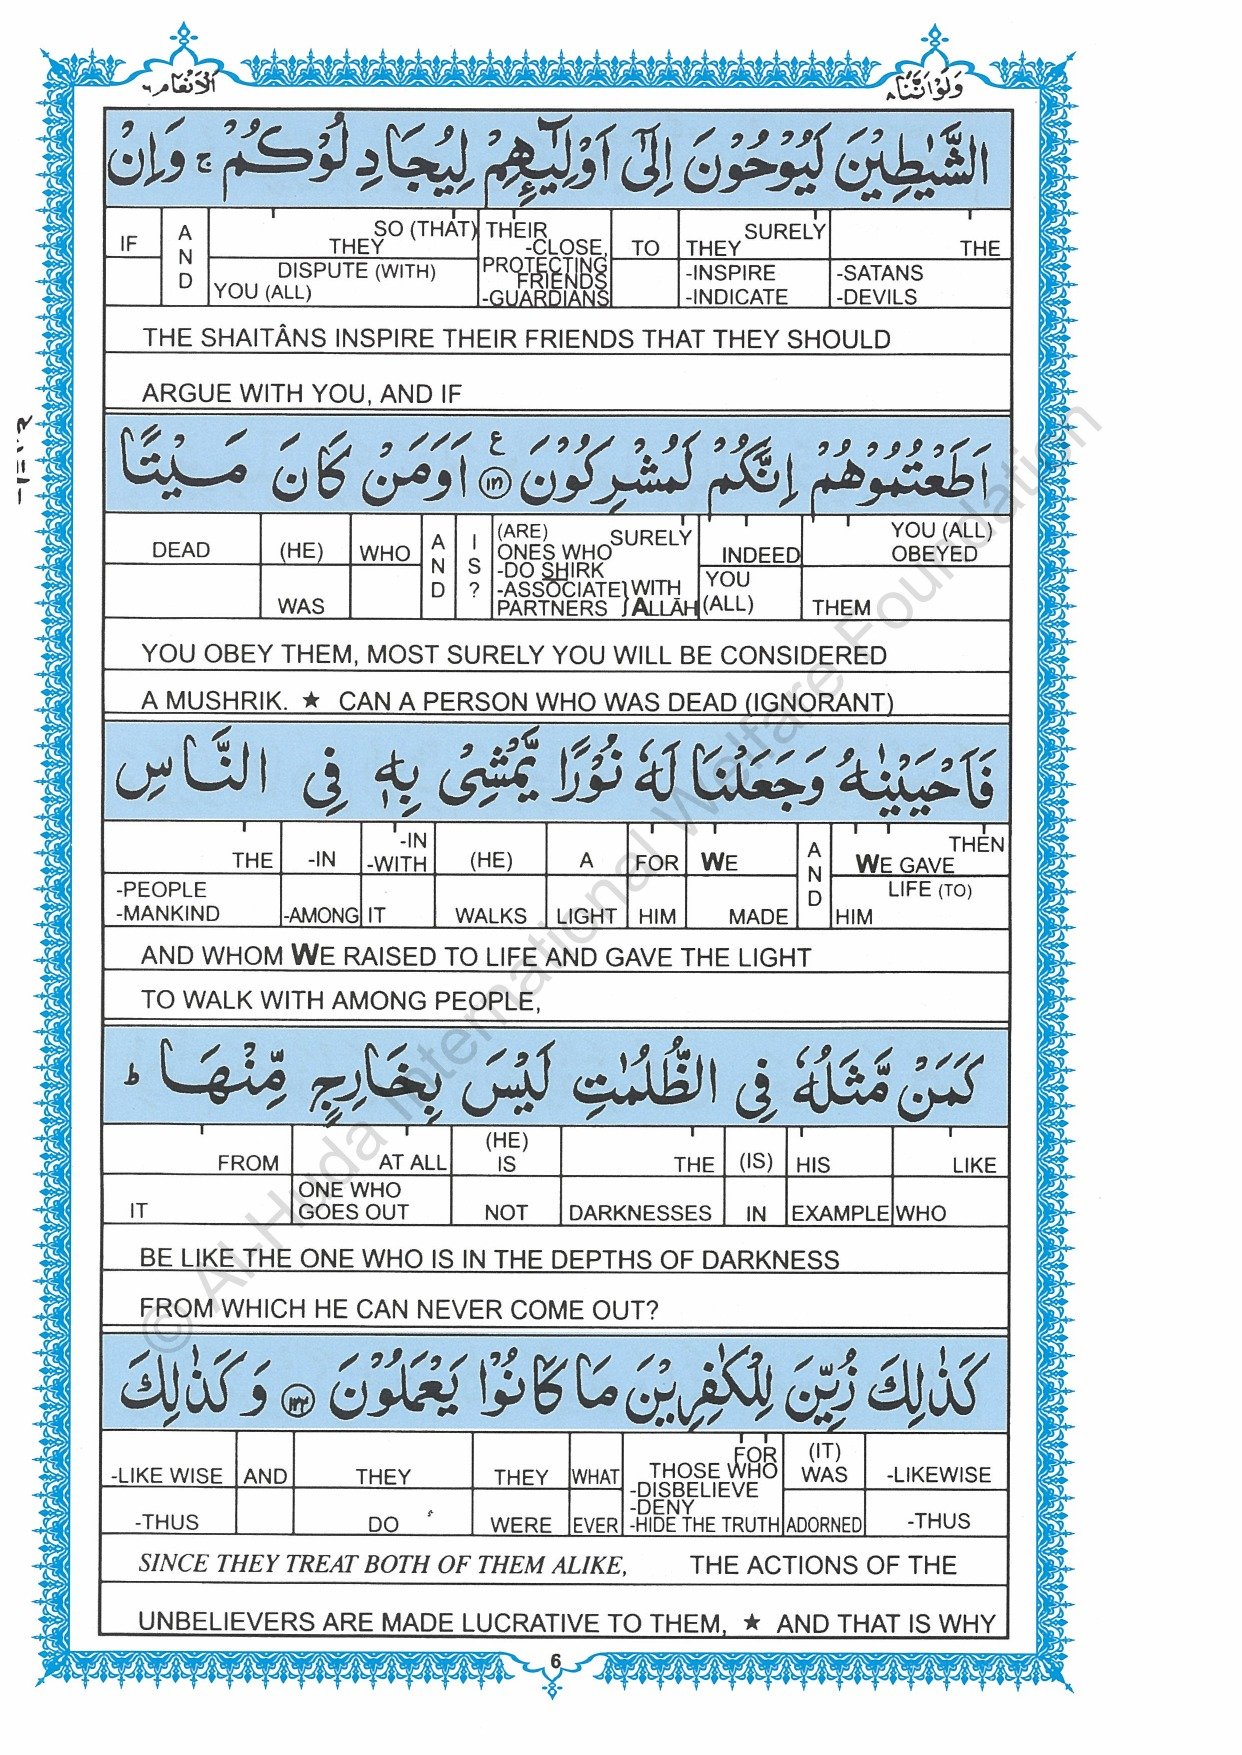 الانعام ٦
ولواننا ٨
الشَّيٰطِيْنَ لَيُوْحُوْنَ اِلٰٓى اَوْلِيٰٓـِٕهِمْ لِيُجَادِلُوْكُمْ ۚ وَاِنْ
IF AND SO (THAT) THEY THEIR -CLOSE, TO SURELY THEY THE
DISPUTE (WITH) YOU (ALL) PROTECTING FRIENDS -GUARDIANS -INSPIRE -INDICATE -SATANS -DEVILS
THE SHAITÂNS INSPIRE THEIR FRIENDS THAT THEY SHOULD
ARGUE WITH YOU, AND IF
اَطَعْتُمُوْهُمْ اِنَّكُمْ لَمُشْرِكُوْنَ ع ١٢١ اَوَمَنْ كَانَ مَيْتًا
DEAD (HE) WHO AND IS? (ARE) ONES WHO SURELY INDEED YOU (ALL) OBEYED
WAS -DO SHIRK -ASSOCIATE PARTNERS } WITH ALLÂH YOU (ALL) THEM
YOU OBEY THEM, MOST SURELY YOU WILL BE CONSIDERED
A MUSHRIK. ★ CAN A PERSON WHO WAS DEAD (IGNORANT)
فَاَحْيَيْنٰهُ وَجَعَلْنَا لَهٗ نُوْرًا يَّمْشِيْ بِهٖ فِي النَّاسِ
THE -IN -IN -WITH (HE) A FOR WE AND THEN WE GAVE
-PEOPLE -MANKIND -AMONG IT WALKS LIGHT HIM MADE LIFE (TO) HIM
AND WHOM WE RAISED TO LIFE AND GAVE THE LIGHT
TO WALK WITH AMONG PEOPLE,
كَمَنْ مَّثَلُهٗ فِي الظُّلُمٰتِ لَيْسَ بِخَارِجٍ مِّنْهَا ط
FROM AT ALL (HE) IS THE (IS) HIS LIKE
IT ONE WHO GOES OUT NOT DARKNESSES IN EXAMPLE WHO
BE LIKE THE ONE WHO IS IN THE DEPTHS OF DARKNESS
FROM WHICH HE CAN NEVER COME OUT?
كَذٰلِكَ زُيِّنَ لِلْكٰفِرِيْنَ مَا كَانُوْا يَعْمَلُوْنَ ١٢٢ وَكَذٰلِكَ
-LIKE WISE AND THEY THEY WHAT FOR THOSE WHO (IT) WAS -LIKEWISE
-THUS DO WERE EVER -DISBELIEVE -DENY -HIDE THE TRUTH ADORNED -THUS
SINCE THEY TREAT BOTH OF THEM ALIKE, THE ACTIONS OF THE
UNBELIEVERS ARE MADE LUCRATIVE TO THEM, ★ AND THAT IS WHY
6
© Al-Huda International Welfare Foundation